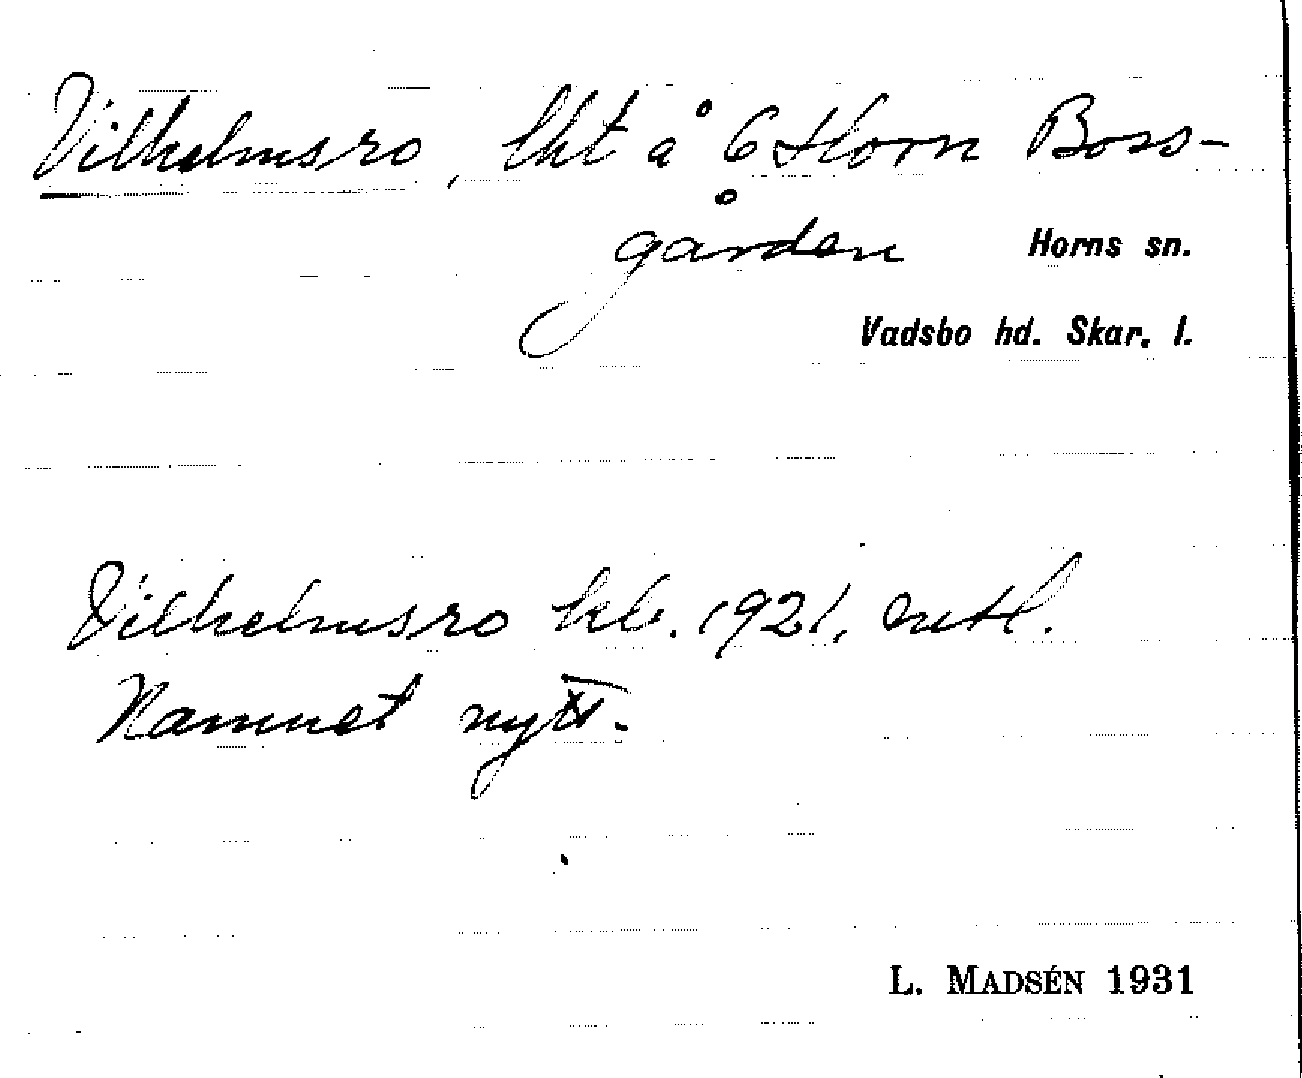 Vilhelmsro, lht å 6 Horn Boss-
gården Horns sn.
Vadsbo hd. Skar. l.
Vilhelmsro kb. 1921, mtl.
Namnet nytt.
L. MADSÉN 1931